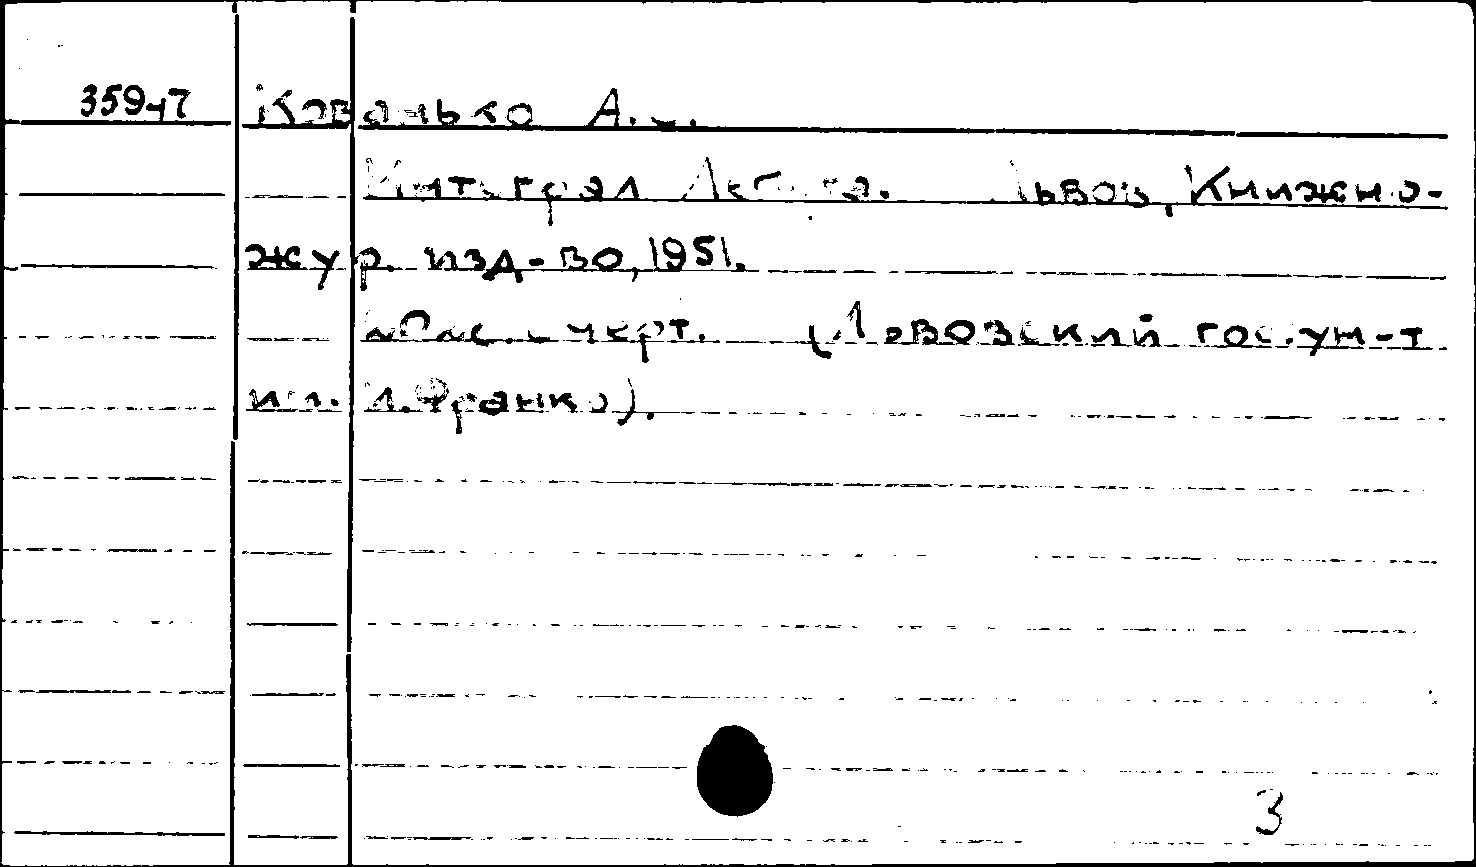 Кованько А.С.
Интеграл Лебега. Львов, Книжно-
жур. изд-во, 1951.
с черт. (Львовский гос. ун-т
им. И. Франко).
3